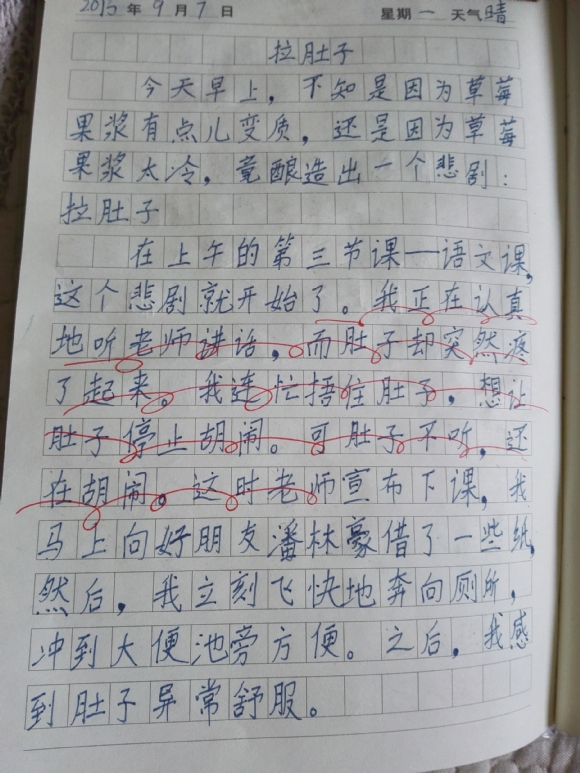 2015年9月7日 星期一 天气晴
拉肚子
今天早上，不知是因为草莓
果浆有点儿变质，还是因为草莓
果浆太冷，竟酿造出一个悲剧：
拉肚子
在上午的第三节课——语文课，
这个悲剧就开始了。我正在认真
地听老师讲话，而肚子却突然疼
了起来。我连忙捂住肚子，想让
肚子停止胡闹。可肚子不听，还
在胡闹。这时老师宣布下课，我
马上向好朋友潘林豪借了一些纸，
然后，我立刻飞快地奔向厕所，
冲到大便池旁方便。之后，我感
到肚子异常舒服。